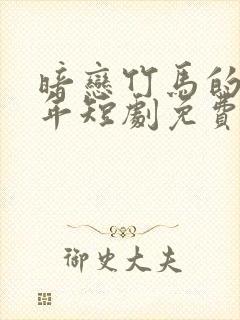 暗戀竹馬的
年短劇免費
御史大夫